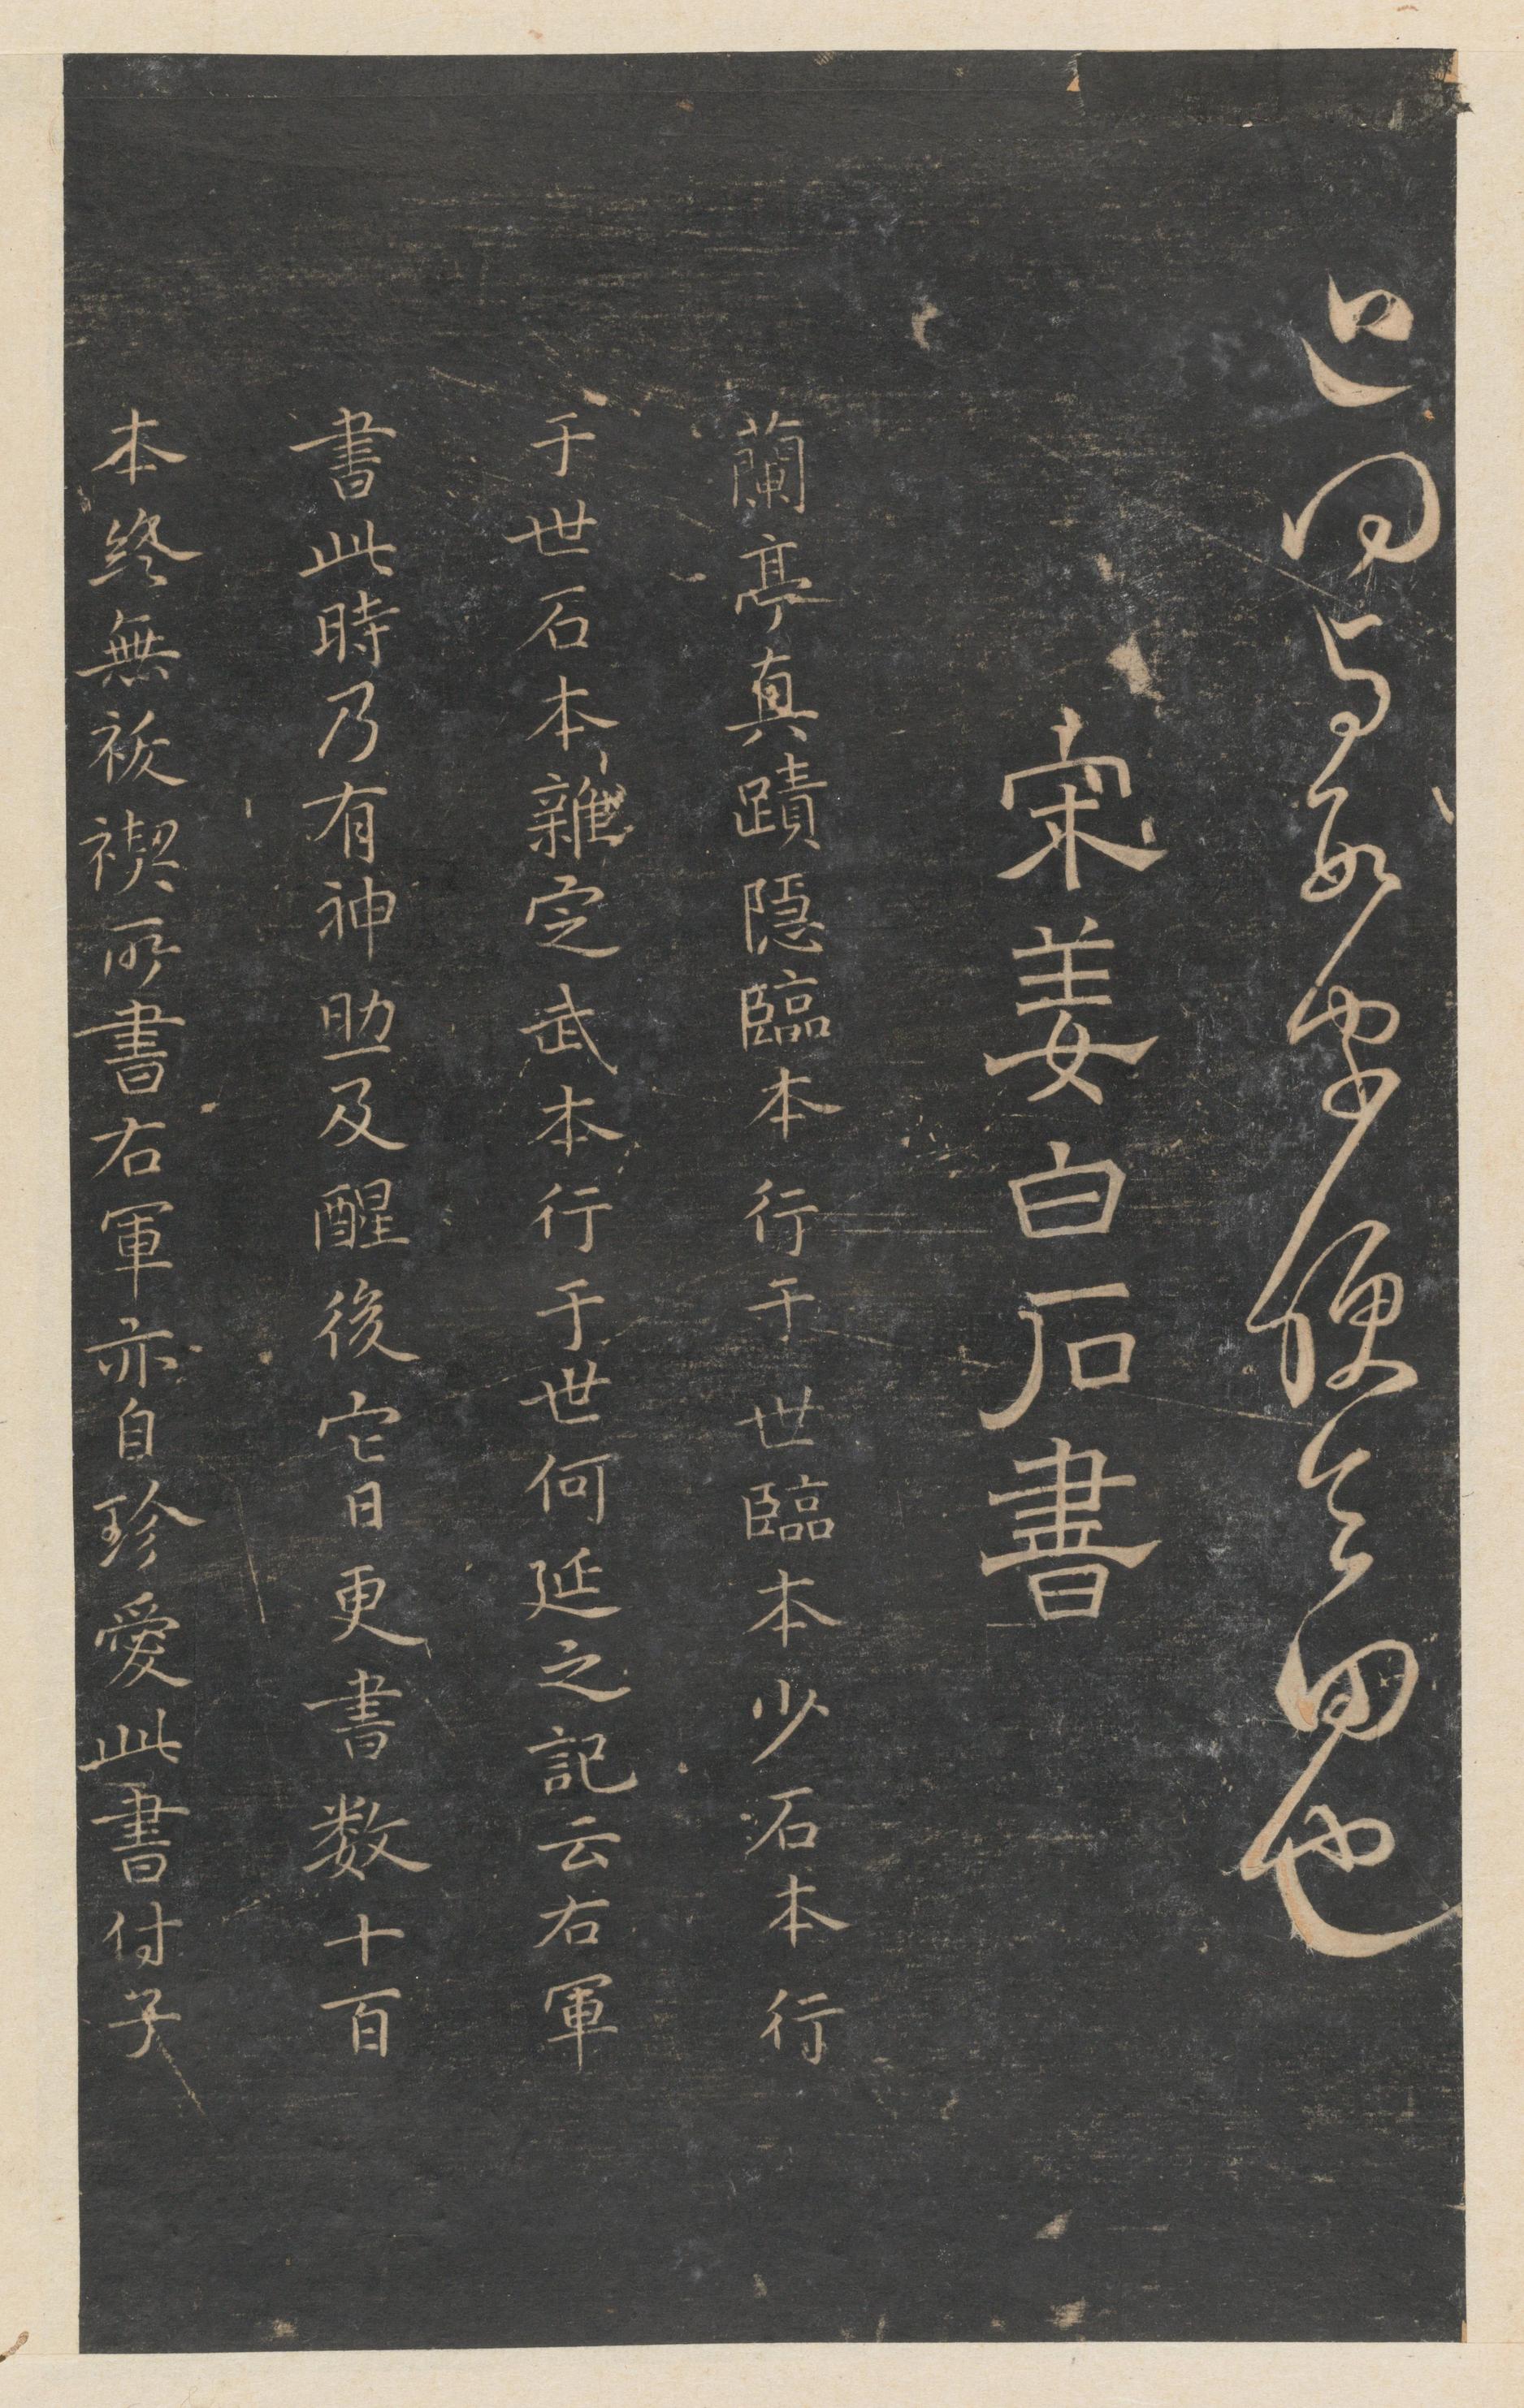 宋姜白石書
蘭亭真蹟隱臨本行于世臨本少石本行
于世石本雜定武本行于世何延之記云右軍
書此時乃有神助及醒後它日更書数十百
本終無祓禊所書右軍亦自珍愛此書付子